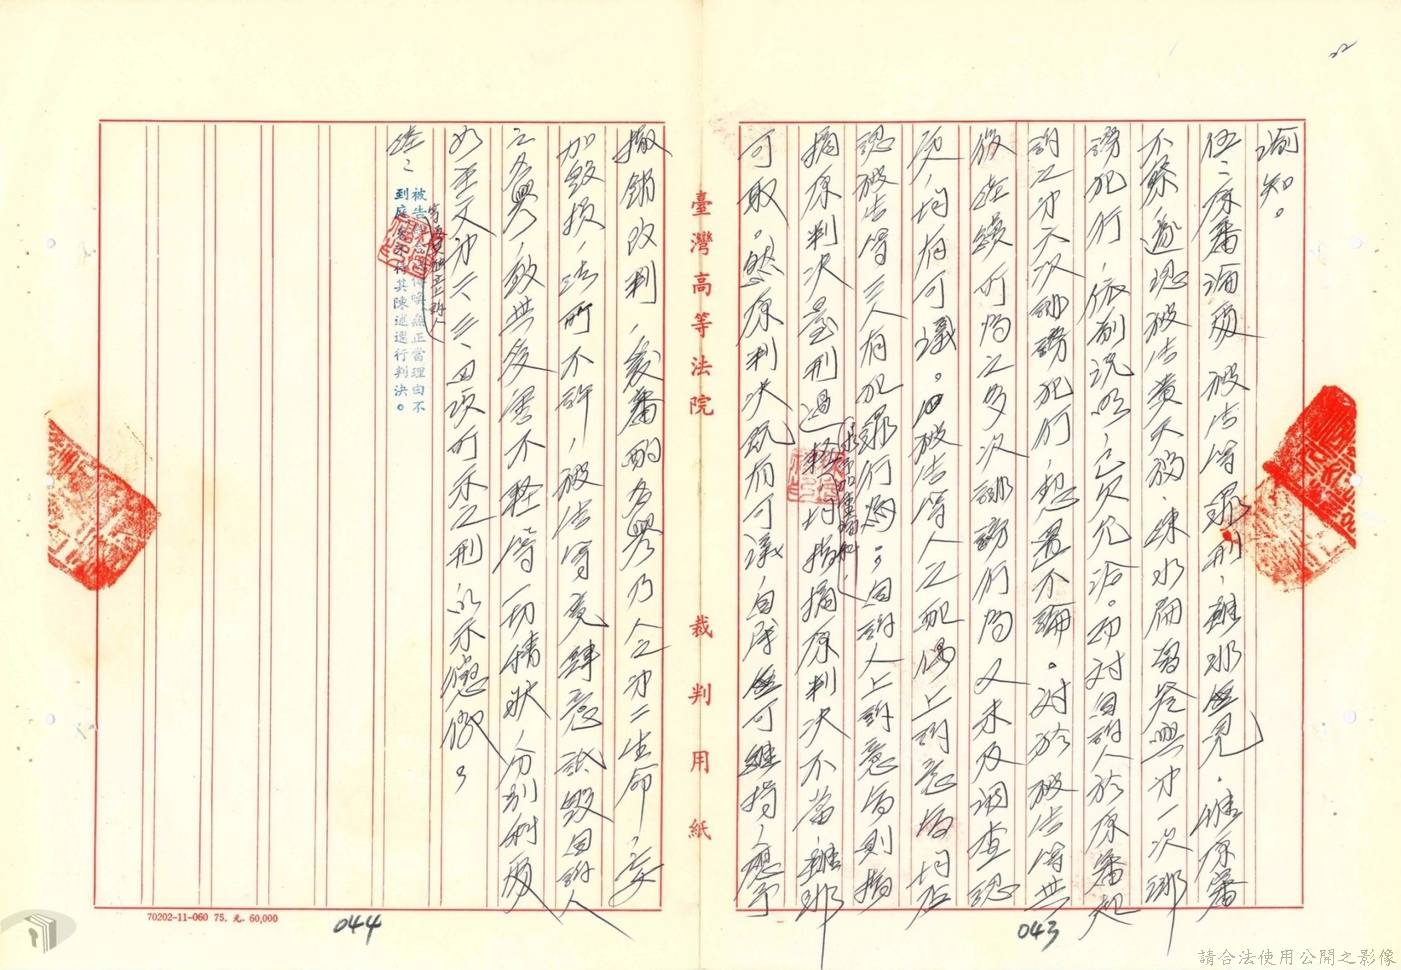 諭知。
伍、原審論處被告等罪刑，雖非無見。惟原審
不察，遽認被告黃天福、陳水扁
謗犯行，依前說明，已欠允洽。而對自訴人於原審起
訴之第六次誹謗犯行，恝置不論。對於被告等其
後連續所為之多次誹謗行為，又未及調查認
定，均有可議。被告等人之配偶上訴意旨均否
認被告等三人有犯罪行為；自訴人上訴意旨則指
摘原判決量刑過輕，均指摘原判決不當，雖非
可取。然原判決既有可議，自屬無可維持，應予
臺灣高等法院
裁判用紙
撤銷改判，爰審酌名譽乃人之第二生命，妄
加毀損，法所不許，被告等竟肆意詆毀自訴人
之名譽，致其受害不輕等一切情狀，分別科處
如主文第二、三、四項所示之刑，以示懲儆。
陸、
被告 傳喚無正當理由不
到庭 其陳述逕行判決。
70202-11-060 75. 元. 60,000
044
043
請合法使用公開之影像